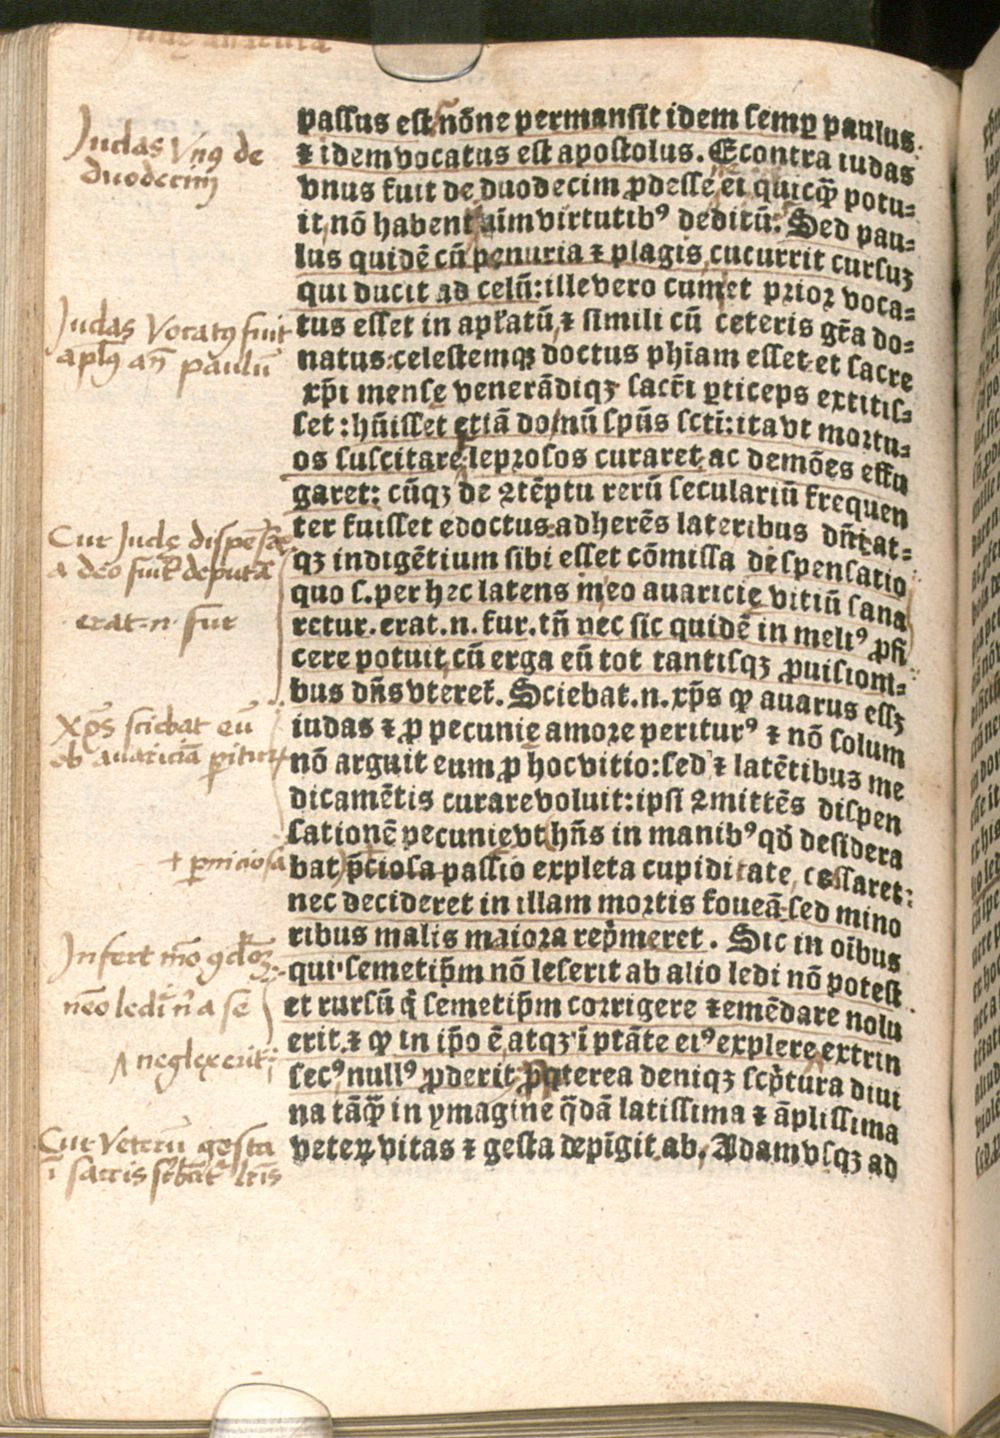 Judas Vnꝰ de
duodecim
Judas Vocatꝰ fuit
apl̄ꝰ an̄ paulū
Cur Judę dispēsa͠
a deo fuit deputa͠
erat .n. fur
xp̄s sciebat eū
ob auaricia͠ ꝑitur
+ ꝑniciosa
Infert
neo ledi nisi a se
neglexerit
Cur Veterū gesta
ī sacris l̄ris
passus est nōne permansit idem semꝑ paulus.
⁊ idem vocatus est apostolus. Econtra iudas
vnus fuit de duodecim ꝓdesse ei quicꝙ̄ potu⸗
it, nō habent aīm virtutibꝰ deditū. Sed pau⸗
lus quidē cū penuria ⁊ plagis cucurrit cursuꝫ
qui ducit ad celū: ille vero cum et prioꝛ voca⸗
tus esset in apl̄atū ⁊ simili cū ceteris gr̄a do⸗
natus: celestemqꝫ doctus ph̄iam esset et sacre
xp̄i mense venerādiqꝫ sacr̄i ꝑticeps extitis⸗
set: hūisset etiā donū spūs scti: ita vt moꝛtu⸗
os suscitare leprosos curaret ac demōes effu
garet: cūqꝫ de ꝯtēptu rerū seculariū frequen
ter fuisset edoctus adherēs lateribus dn̄i: at⸗
qꝫ indigētium sibi esset cōmissa dēspensatio
quo s. per hec latens in eo auaricie vitiū sana
retur. erat .n. fur. tn̄ nec sic quidē in meliꝰ ꝓfi
cere potuit cū erga eū tot tantisqꝫ ꝓuisioni⸗
bus dn̄s vteret̄. Sciebat .n. xp̄s ꝙ auarus eēꝫ
iudas ⁊ ꝓ pecunie amoꝛe periturꝰ ⁊ nō solum
nō arguit eum ꝓ hoc vitio: sed ⁊ latētibuꝫ me
dicamētis curare voluit: ipsi ꝯmittēs dispen
sationē pecunie vt hn̄s in manibꝰ qd̄ desidera
bat p̄ciosa passio expleta cupiditate, cessaret:
nec decideret in illam moꝛtis foueā sed mino
ribus malis maioꝛa rep̄meret. Sic in oībus
qui semetip̄m nō leserit ab alio ledi nō potest
et rursū q̄ semetip̄m coꝛrigere ⁊ emēdare nolu
erit. ⁊ ꝙ in ip̄o ē atqꝫ ī ptāte eiꝰ explere extrin
secꝰ nullꝰ ꝓderit ꝓpterea deniqꝫ scp̄tura diui
na tāꝙ̄ in ymagine q̄dā latissima ⁊ āplissima
veteꝝ vitas ⁊ gesta depīgit ab, Adam vsqꝫ ad